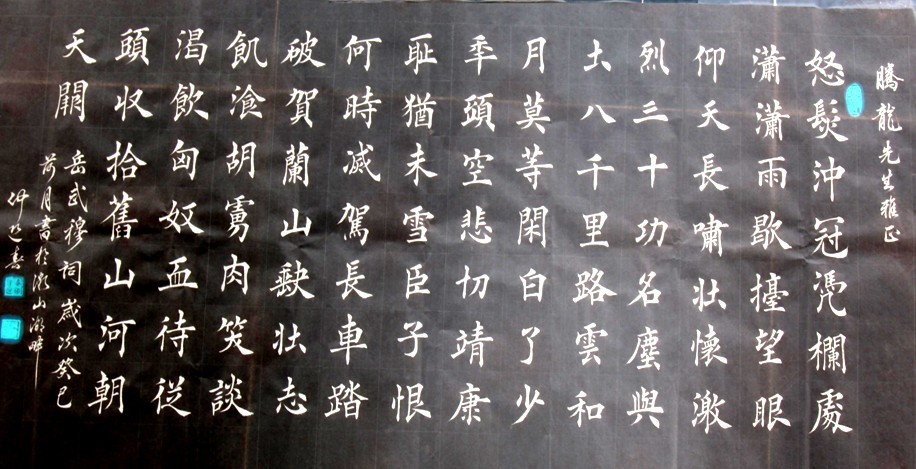 騰龍先生雅正
怒髮沖冠凴欄處
瀟瀟雨歇擡望眼
仰天長嘯壯懷激
烈三十功名塵與
土八千里路雲和
月莫等閑白了少
年頭空悲切靖康
耻猶未雪臣子恨
何時滅駕長車踏
破賀蘭山缺壯志
飢飡胡虜肉笑談
渴飲匈奴血待從
頭收拾舊山河朝
天闕
岳武穆詞歲次癸巳
荷月書於山湖畔
仲